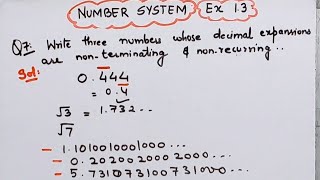 NUMBER SYSTEM Ex 1.3
Q7: Write three numbers whose decimal expansions
are non-terminating & non-recurring..
Sol:
0.444
= 0.4̅
√3 = 1.732..
√7
- 1.101001000 1000...
- 0.202002000 2000...
- 5.7310 73100 731000...